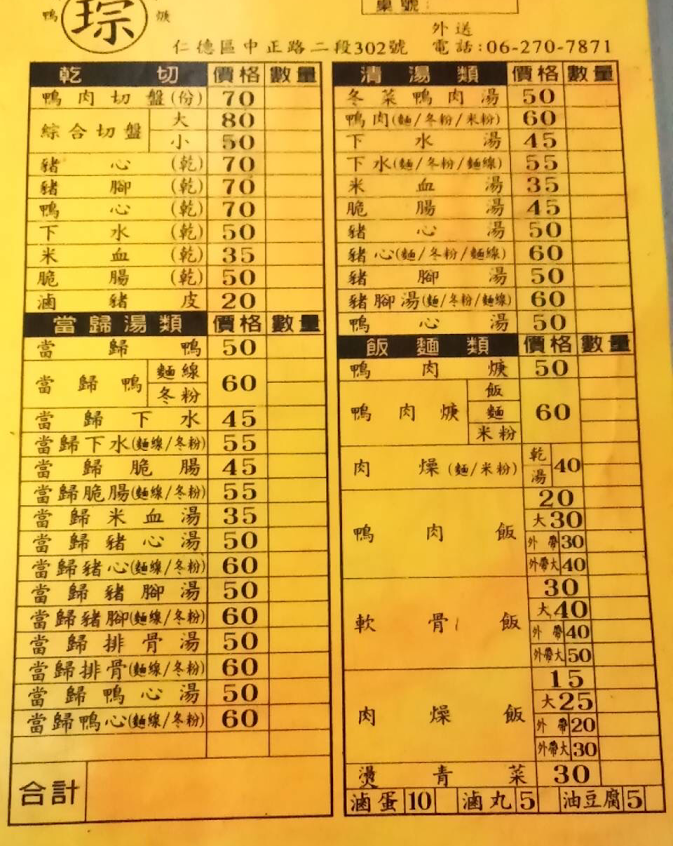 鴨 琮 焿
桌號：
外送
仁德區中正路二段302號 電話：06-270-7871
乾切 價格 數量
鴨肉切盤(份) 70
綜合切盤 大 80
小 50
豬心(乾) 70
豬腳(乾) 70
鴨心(乾) 70
下水(乾) 50
米血(乾) 35
脆腸(乾) 50
滷豬皮 20
當歸湯類 價格 數量
當歸鴨 50
當歸鴨 麵線 冬粉 60
當歸下水 45
當歸下水(麵線/冬粉) 55
當歸脆腸 45
當歸脆腸(麵線/冬粉) 55
當歸米血湯 35
當歸豬心湯 50
當歸豬心(麵線/冬粉) 60
當歸豬腳湯 50
當歸豬腳(麵線/冬粉) 60
當歸排骨湯 50
當歸排骨(麵線/冬粉) 60
當歸鴨心湯 50
當歸鴨心(麵線/冬粉) 60
合計
清湯類 價格 數量
冬菜鴨肉湯 50
鴨肉(麵/冬粉/米粉) 60
下水湯 45
下水(麵/冬粉/麵線) 55
米血湯 35
脆腸湯 45
豬心湯 50
豬心(麵/冬粉/麵線) 60
豬腳湯 50
豬腳湯(麵/冬粉/麵線) 60
鴨心湯 50
飯麵類 價格 數量
鴨肉焿 50
鴨肉焿 飯 麵 米粉 60
肉燥(麵/米粉) 乾 湯 40
鴨肉飯 20
大 30
外帶 30
外帶大 40
軟骨飯 30
大 40
外帶 40
外帶大 50
肉燥飯 15
大 25
外帶 20
外帶大 30
燙青菜 30
滷蛋 10 滷丸 5 油豆腐 5